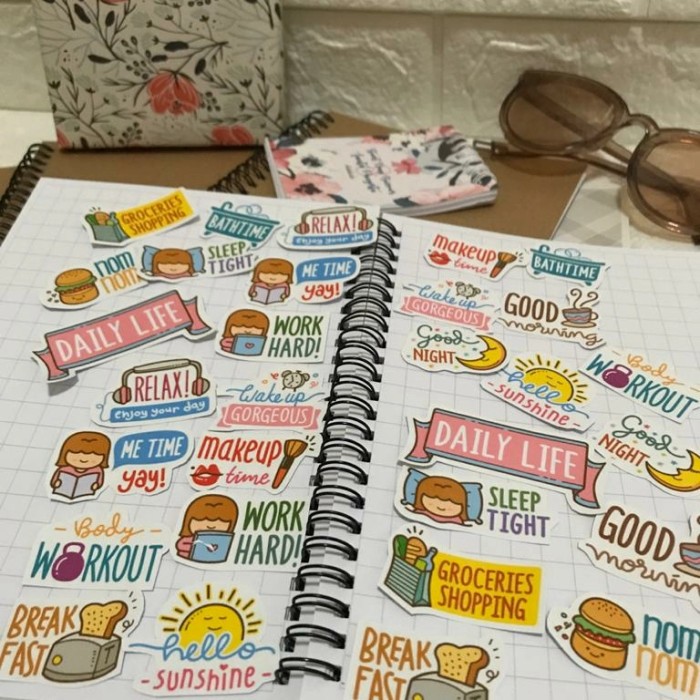 GROCERIES
SHOPPING
BATHTIME
RELAX!
enjoy your day
NOM
NOM
SLEEP
TIGHT
ME TIME
yay!
DAILY LIFE
WORK
HARD!
RELAX!
enjoy your day
Wake up
GORGEOUS
ME TIME
yay!
makeup
time
Body
WORKOUT
WORK
HARD!
BREAK
FAST
hello
sunshine
makeup
time
BATHTIME
Wake up
GORGEOUS
GOOD
morning
Good
NIGHT
hello
sunshine
Body
WORKOUT
DAILY LIFE
Good
NIGHT
SLEEP
TIGHT
GOOD
morning
GROCERIES
SHOPPING
BREAK
FAST
nom
nom